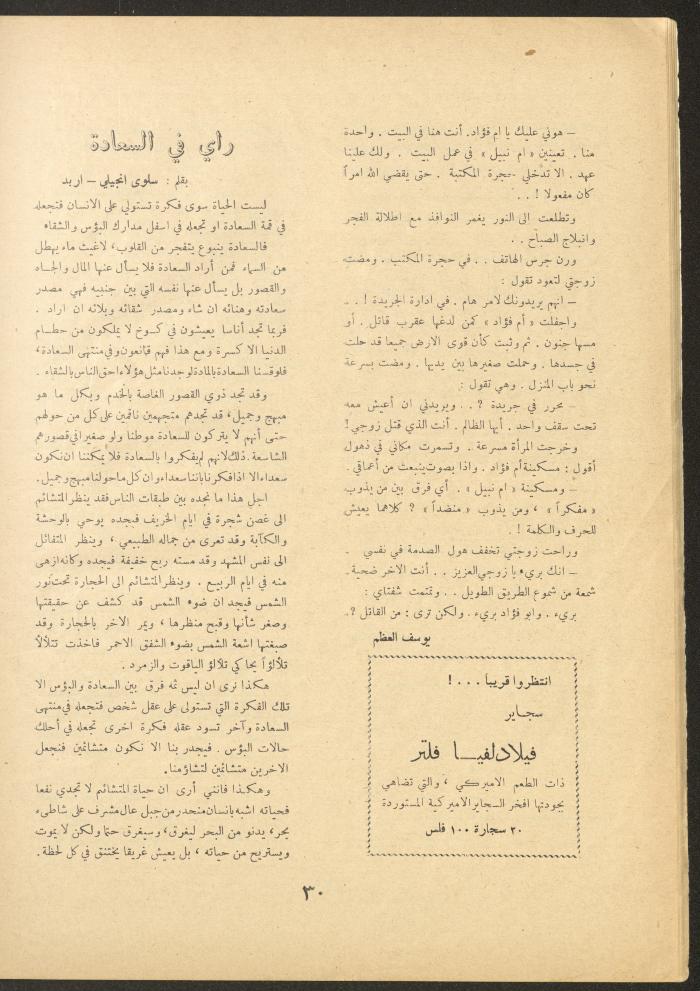 – هوني عليك يا ام فؤاد. أنت هنا في البيت . واحدة
منا . تعينين « ام نبيل » في عمل البيت . ولك علينا
عهد . الا تدخلي حجرة المكتبة . حتى يقضي الله امراً
كان مفعولا ! . .
وتطلعت الى النور يغمر النوافذ مع اطلالة الفجر
وانبلاج الصباح . .
ورن جرس الهاتف . . في حجرة المكتب . ومضت
زوجتي لتعود تقول :
– انهم يريدونك لامر هام . في ادارة الجريدة ! . .
واجفلت « أم فؤاد » كمن لدغها عقرب قاتل . أو
مسها جنون . ثم وثبت كأن قوى الارض جميعا قد حلت
في جسدها . وحملت صغيرها بين يديها . ومضت بسرعة
نحو باب المنزل . وهي تقول :
– محرر في جريدة ? . . ويريدني ان أعيش معه
تحت سقف واحد . أيها الظالم . أنت الذي قتل زوجي!
وخرجت المرأة مسرعة . وتسمرت مكاني في ذهول
أقول : مسكينة أم فؤاد . واذا بصوت ينبعث من أعماقي .
– ومسكينة « ام نبيل » . أي فرق بين من يذوب
« مفكراً » ، ومن يذوب « منضداً » ? كلاهما يعيش
للحرف والكلمة ! .
وراحت زوجتي تخفف هول الصدمة في نفسي .
– انك بريء يا زوجي العزيز . . أنت الاخر ضحية.
شمعة من شموع الطريق الطويل . . وتمتمت شفتاي :
بريء . وابو فؤاد بريء . ولكن ترى : من القاتل ?..
يوسف العظم
انتظروا قريبا . . . !
سجاير
فيلادلفيا فلتر
ذات الطعم الاميركي ، والتي تضاهي
بجودتها افخر السجاير الاميركية المستوردة
٢٠ سجارة ١٠٠ فلس
راي في السعادة
بقلم : سلوى انجيلي – اربد
ليست الحياة سوى فكرة تستولي على الانسان فتجعله
في قمة السعادة او تجعله في اسفل مدارك البؤس والشقاء
فالسعادة ينبوع يتفجر من القلوب، لاغيث ماء يهطل
من السماء فمن أراد السعادة فلا يسأل عنها المال والجاه
والقصور بل يسأل عنها نفسه التي بين جنبيه فهي مصدر
سعادته وهنائه ان شاء ومصدر شقائه وبلائه ان اراد .
فربما تجد أناسا يعيشون في كوخ لا يملكون من حطام
الدنيا الا كسرة ومع هذا فهم قانعون وفي منتهى السعادة،
فلو قسنا السعادة بالمادة لوجدنا مثل هؤلاء احق الناس بالشقاء .
وقد تجد ذوي القصور الغاصة بالخدم وبكل ما هو
مبهج وجميل، قد تجدهم متجهمين ناقمين على كل من حولهم
حتى أنهم لا يتركون للسعادة موطنا ولو صغيرا في قصورهم
الشاسعة. ذلك لانهم لم يفكروا بالسعادة فلا يمكننا ان نكون
سعداء الا اذا فكرنا باننا سعداء وان كل ما حولنا مبهج وجميل.
اجل هذا ما نجده بين طبقات الناس فقد ينظر المتشائم
الى غصن شجرة في ايام الخريف فيجده يوحي بالوحشة
والكآبة وقد تعرى من جماله الطبيعي ، وينظر المتفائل
الى نفس المشهد وقد مسته ريح خفيفة فيجده وكانه ازهى
منه في ايام الربيع . وينظر المتشائم الى الحجارة تحت نور
الشمس فيجد ان ضوء الشمس قد كشف عن حقيقتها
وصغر شأنها وقبح منظرها ، ويمر الاخر بالحجارة وقد
صبغتها اشعة الشمس بضوء الشفق الاحمر فاخذت تتلألأ
تلألؤاً يحاكي تلألؤ الياقوت والزمرد .
هكذا نرى ان ليس ثمة فرق بين السعادة والبؤس الا
تلك الفكرة التي تستولي على عقل شخص فتجعله في منتهى
السعادة وآخر تسود عقله فكرة اخرى تجعله في أحلك
حالات البؤس . فيجدر بنا الا نكون متشائمين فنجعل
الاخرين متشائمين لتشاؤمنا.
وهكذا فانني أرى ان حياة المتشائم لا تجدي نفعا
فحياته اشبه بانسان منحدر من جبل عال مشرف على شاطىء
بحر، يدنو من البحر ليغرق، وسيغرق حتما ولكن لا يموت
ويستريح من حياته ، بل يعيش غريقا يختنق في كل لحظة.
٣٠